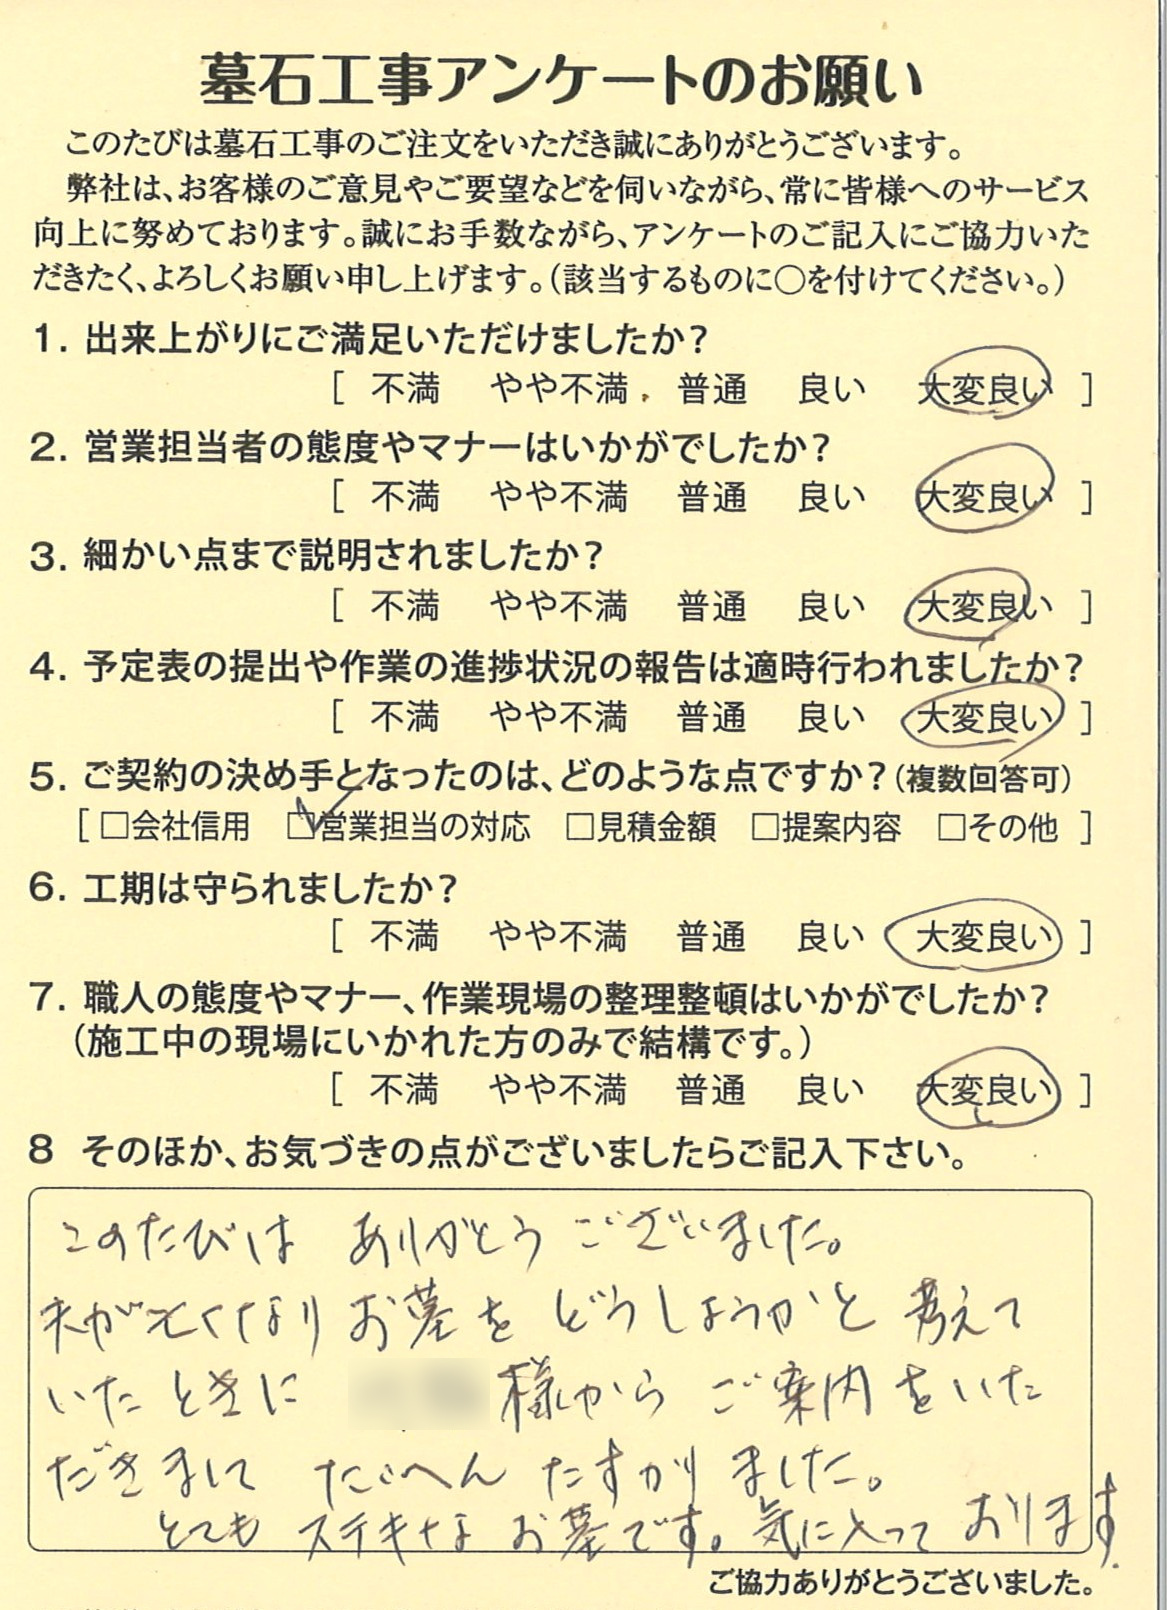 墓石工事アンケートのお願い
このたびは墓石工事のご注文をいただき誠にありがとうございます。
弊社は、お客様のご意見やご要望などを伺いながら、常に皆様へのサービス
向上に努めております。誠にお手数ながら、アンケートのご記入にご協力いた
だきたく、よろしくお願い申し上げます。(該当するものに○を付けてください。)
1. 出来上がりにご満足いただけましたか?
[ 不満 やや不満 普通 良い 大変良い ]
2. 営業担当者の態度やマナーはいかがでしたか?
[ 不満 やや不満 普通 良い 大変良い ]
3. 細かい点まで説明されましたか?
[ 不満 やや不満 普通 良い 大変良い ]
4. 予定表の提出や作業の進捗状況の報告は適時行われましたか?
[ 不満 やや不満 普通 良い 大変良い ]
5. ご契約の決め手となったのは、どのような点ですか?(複数回答可)
[ □会社信用 ☑営業担当の対応 □見積金額 □提案内容 □その他 ]
6. 工期は守られましたか?
[ 不満 やや不満 普通 良い 大変良い ]
7. 職人の態度やマナー、作業現場の整理整頓はいかがでしたか?
(施工中の現場にいかれた方のみで結構です。)
[ 不満 やや不満 普通 良い 大変良い ]
8 そのほか、お気づきの点がございましたらご記入下さい。
このたびは ありがとう ございました。
夫が亡くなり お墓を どうしようかと 考えて
いた ときに 様から ご案内 をいた
だきまして たいへん たすかり ました。
とても ステキな お墓です。気に入って おります.
ご協力ありがとうございました。